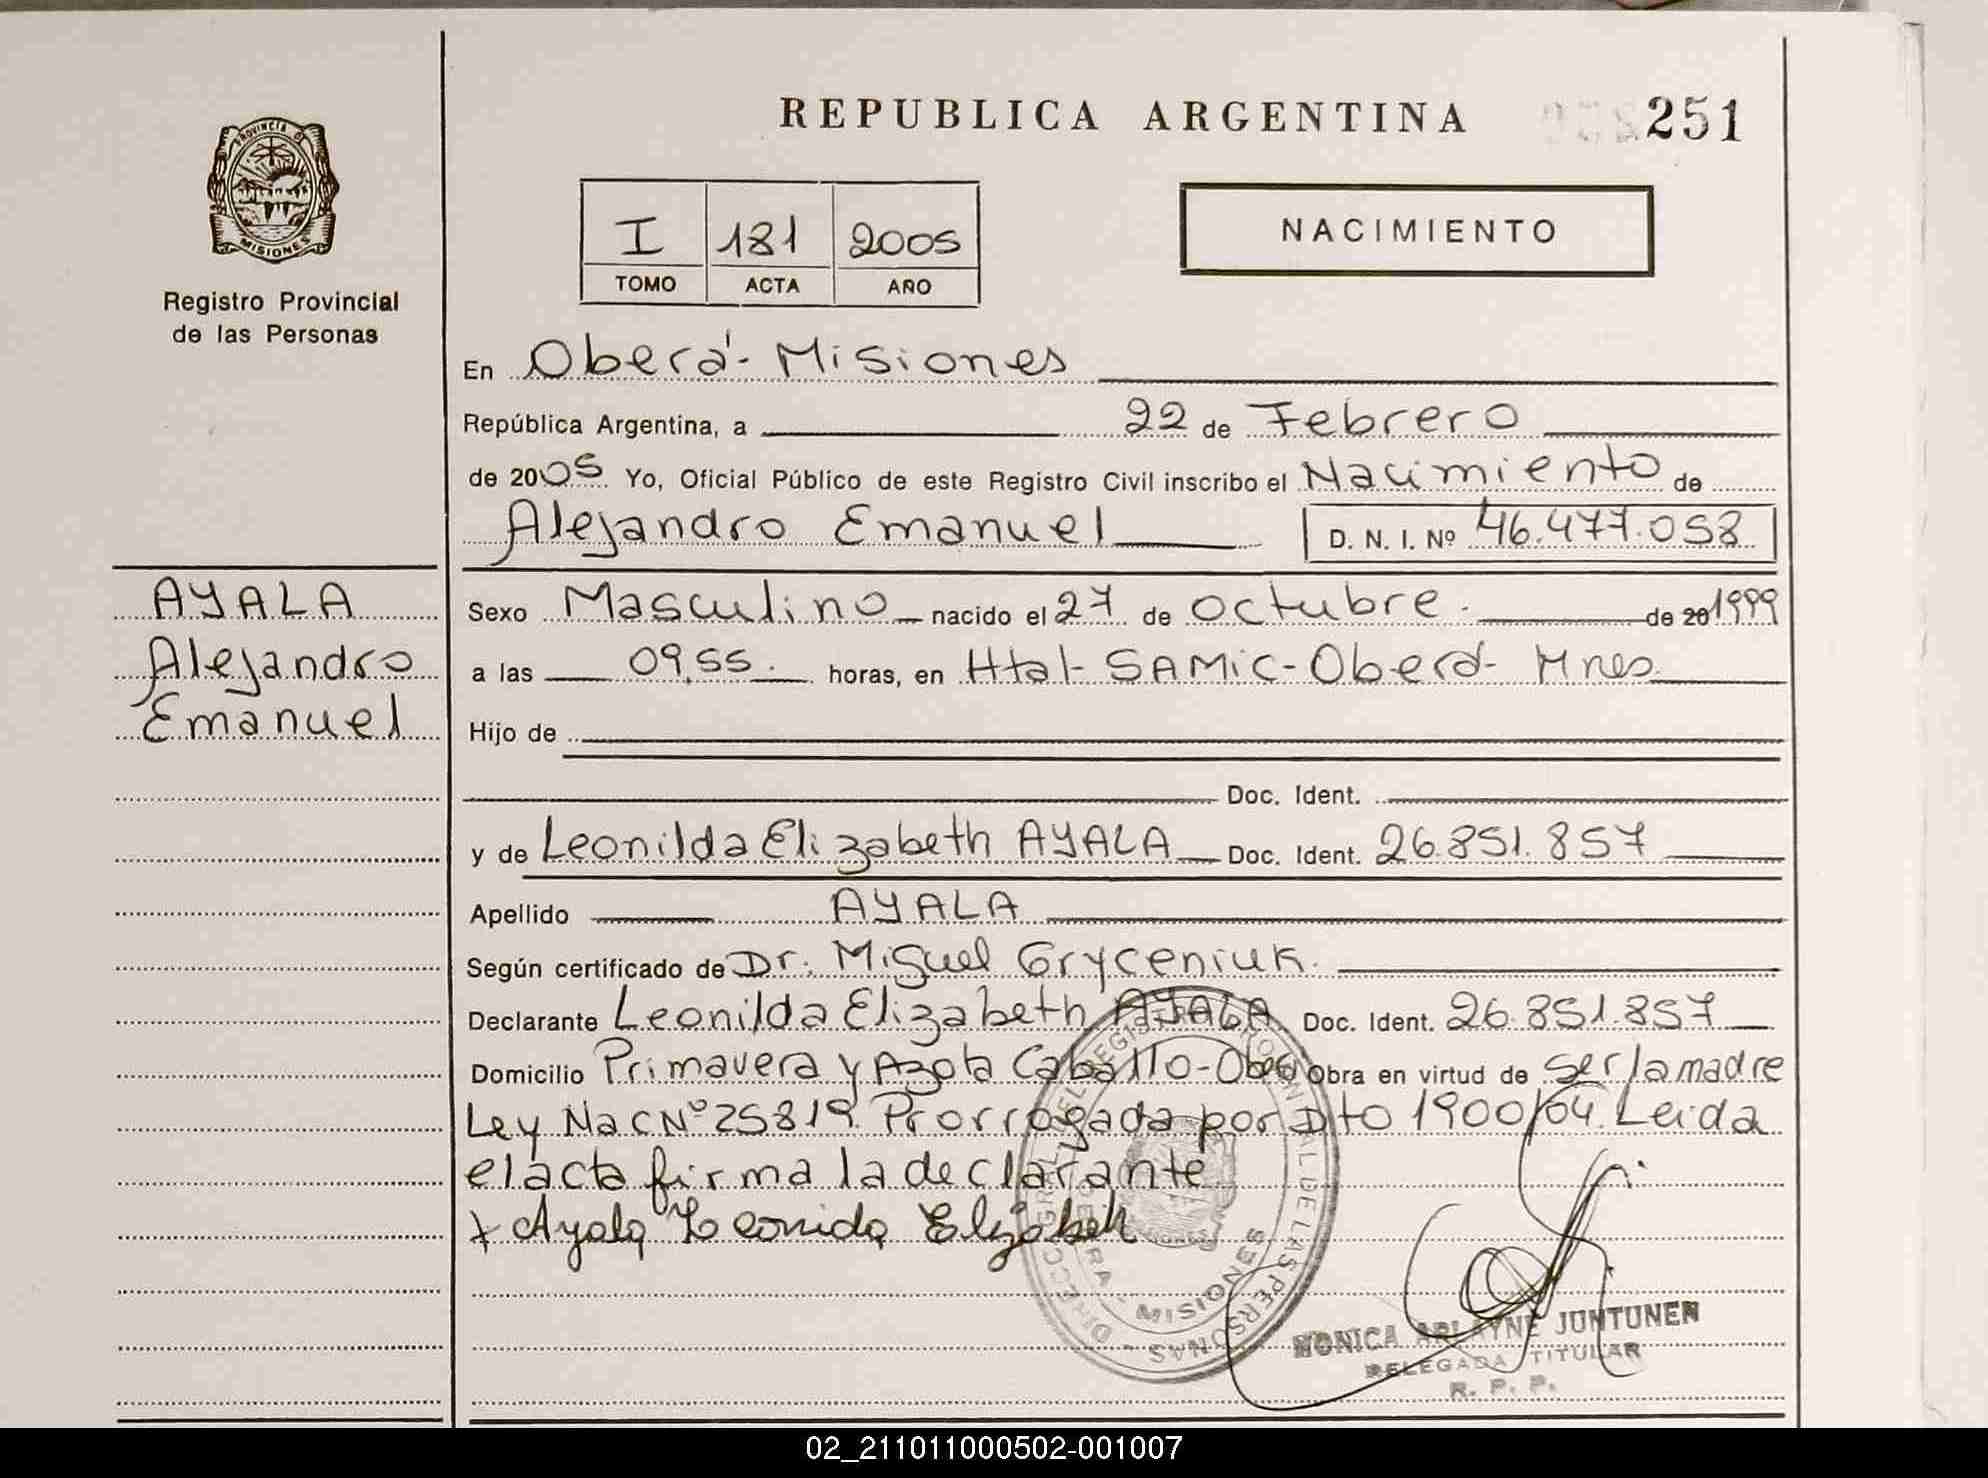 REPUBLICA ARGENTINA
251
PROVINCIA DE
MISIONES
Registro Provincial
de las Personas
I 181 2005
TOMO ACTA AÑO
NACIMIENTO
En Oberá - Misiones
República Argentina, a 22 de Febrero
de 2005 Yo, Oficial Público de este Registro Civil inscribo el Nacimiento de
Alejandro Emanuel D. N. I. Nº 46.477.058
AYALA
Alejandro
Emanuel
Sexo Masculino nacido el 27 de octubre. de 20 1999
a las 09,55. horas, en Htal - SAMIC - Oberá - Mnes.
Hijo de
Doc. Ident.
y de Leonilda Elizabeth AYALA Doc. Ident. 26.851.857
Apellido AYALA
Según certificado de Dr. Miguel Gryceniuk.
Declarante Leonilda Elizabeth AYALA Doc. Ident. 26.851.857
Domicilio Primavera y Azota Caballo - Oberá Obra en virtud de ser la madre
Ley Nac Nº 25819. Prorrogada por Dto 1900/04. Leida
el acta firma la declarante
x Ayala Leonida Elizabeh
MISIONES
MONICA ARLAYNE JUNTUNEN
DELEGADA TITULAR
R. P. P.
02_211011000502-001007